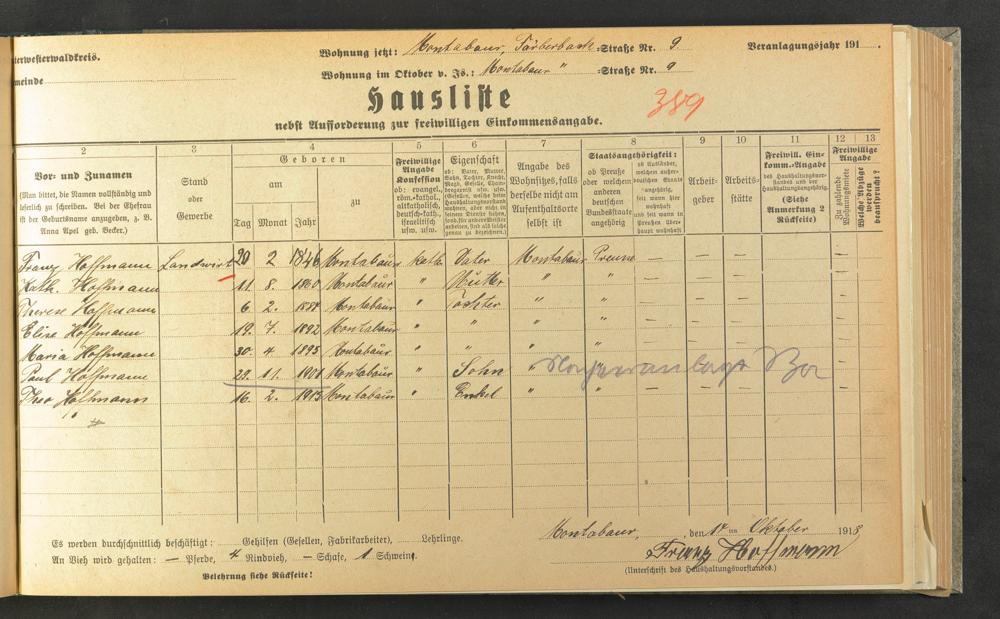 nterwesterwaldkreis.
Wohnung jetzt: Montabaur, Färberbach-Straße Nr. 9
Veranlagungsjahr 191
meinde
Wohnung im Oktober v. Js.: Montabaur " -Straße Nr. 9
Hausliste
389
nebst Aufforderung zur freiwilligen Einkommensangabe.
2 3 4 5 6 7 8 9 10 11 12 13
Vor- und Zunamen
(Man bittet, die Namen vollständig und leserlich zu schreiben. Bei der Ehefrau ist der Geburtsname anzugeben, z. B. Anna Apel geb. Becker.)
Stand oder Gewerbe
Geboren
am
zu
Tag Monat Jahr
Freiwillige Angabe Konfession
ob: evangel., röm.-kathol., altkatholisch, deutsch-kath., israelitisch, usw. usw.
Eigenschaft
Angabe des Wohnsitzes, falls derselbe nicht am Aufenthaltsorte selbst ist
Staatsangehörigkeit:
ob Preuße oder welchem anderen deutschen Bundesstaate angehörig
Arbeit-geber
Arbeits-stätte
Freiwill. Ein-komm.-Angabe
(Siehe Anmerkung 2 Rückseite)
Freiwillige Angabe
Zu zahlende Wohnungsmiete
Welche Abzüge werden beansprucht?
Franz Hoffmann Landwirt 20 2 1846 Montabaur kath. Vater Montabaur Preuße — — — —
Kath. Hoffmann 11. 8. 1860 Montabaur " Mutter " " — — — —
Therese Hoffmann 6. 2. 1887 Montabaur " Tochter " " — — — —
Elise Hoffmann 19. 7. 1892 Montabaur " " " " — — — —
Maria Hoffmann 30. 4. 1895 Montabaur " " " " — — — —
Paul Hoffmann 29. 11. 1901 Montabaur " Sohn "
Theo Hoffmann 16. 2. 1915 Montabaur " Enkel " " — — — —
Es werden durchschnittlich beschäftigt: Gehilfen (Gesellen, Fabrikarbeiter), Lehrlinge.
Montabaur, den 14 ten Oktober 1918
An Vieh wird gehalten: — Pferde, 4 Rindvieh, — Schafe, 1 Schweine.
Franz Hoffmann
(Unterschrift des Haushaltungsvorstandes.)
Belehrung siehe Rückseite!